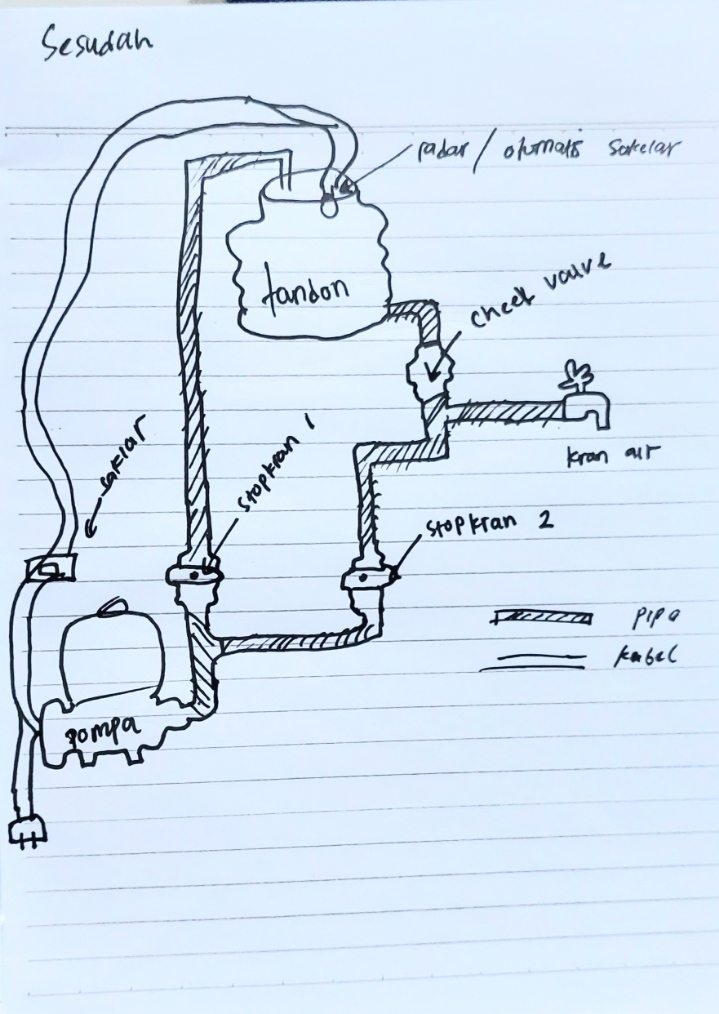 Sesudah
radar / otomatis sakelar
tandon
check valve
saklar
stopkran 1
kran air
stopkran 2
pipa
kabel
pompa